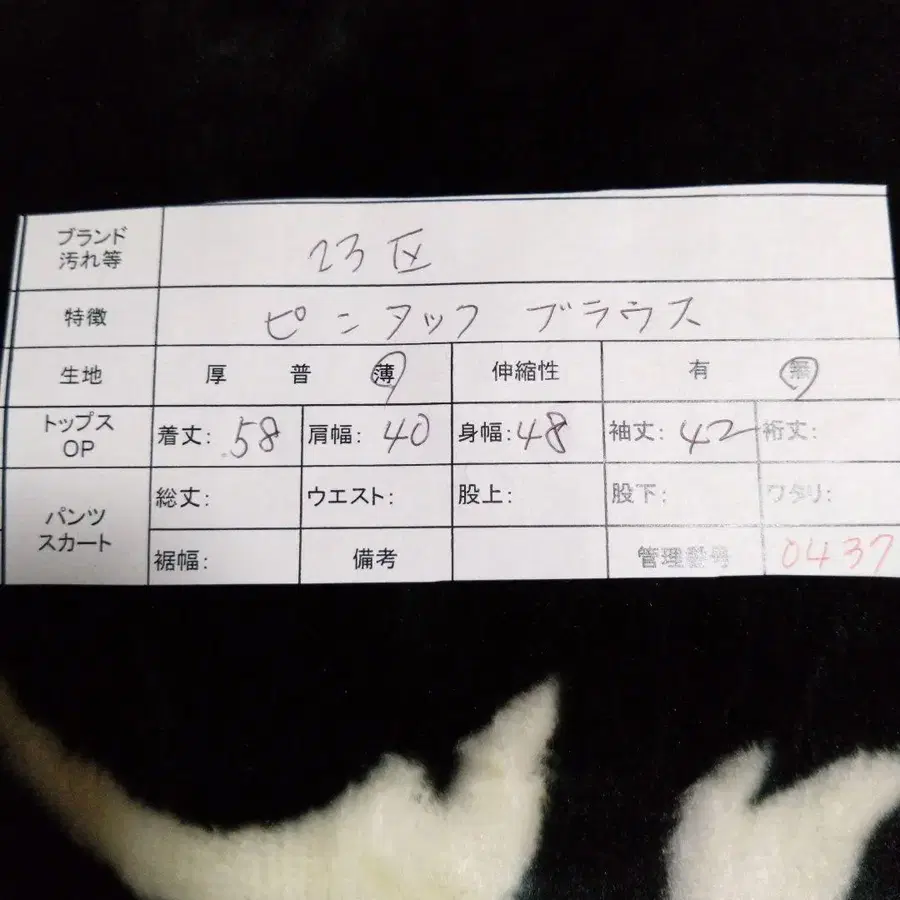 ブランド
汚れ等
23区
特徴
ピンタック ブラウス
生地
厚 普 薄
伸縮性
有 無
トップス
OP
着丈: 58
肩幅: 40
身幅: 48
袖丈: 42
裄丈:
パンツ
スカート
総丈:
ウエスト:
股上:
股下:
ワタリ:
裾幅:
備考
管理番号
0437